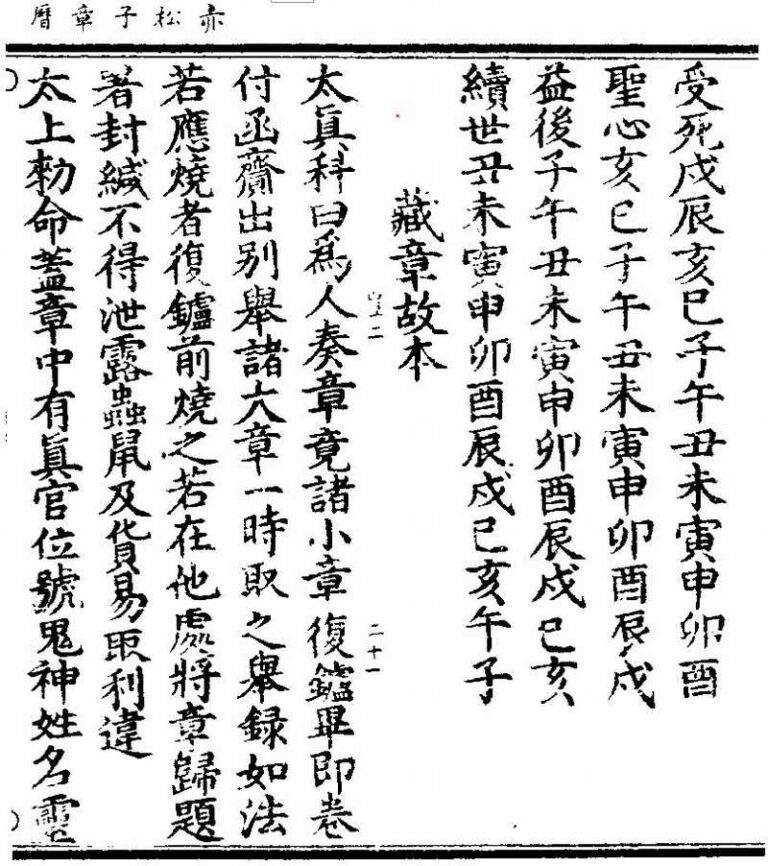 赤松子章曆
受死戌辰亥巳子午丑未寅申卯酉
聖心亥巳子午丑未寅申卯酉辰戌
益後子午丑未寅申卯酉辰戌巳亥
續世丑未寅申卯酉辰戌巳亥午子
藏章故本
二十一
太眞科曰爲人奏章竟諸小章復鑪畢即卷
付函齋出别舉諸大章一時取之舉録如法
若應燒者復鑪前燒之若在他處將章歸題
著封緘不得泄露蟲鼠及貨易取利違
太上勑命蓋章中有眞官位號鬼神姓名靈